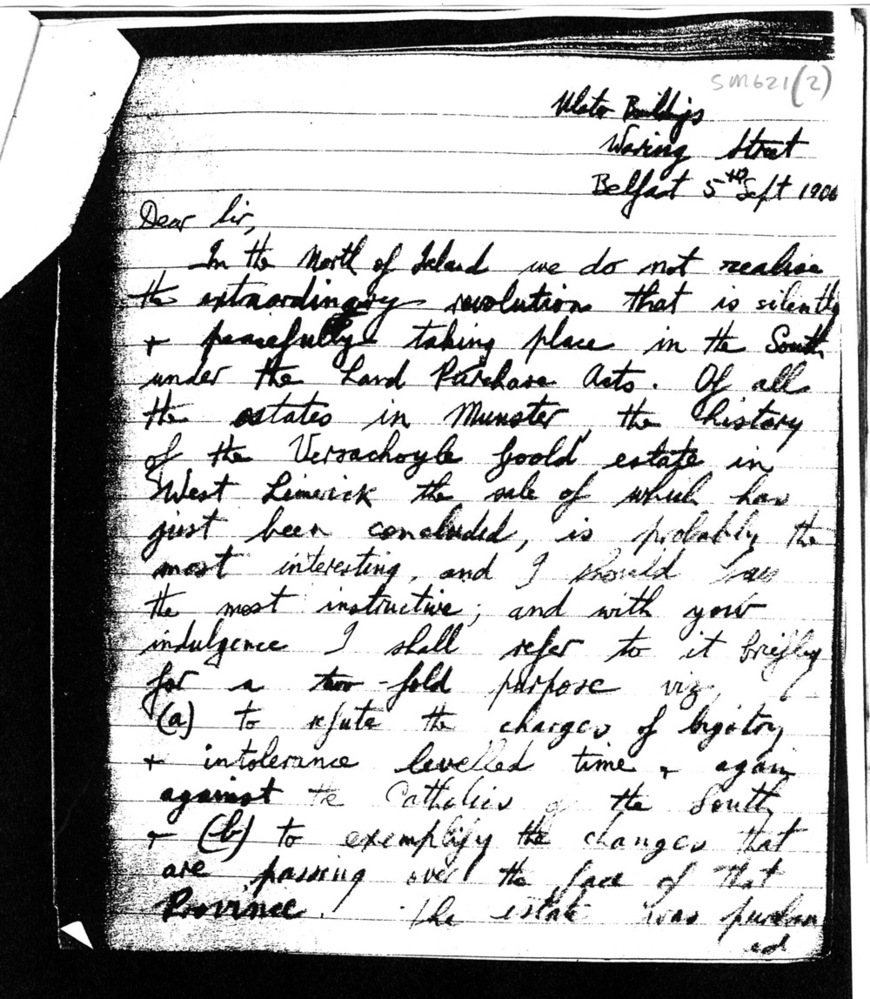 SM621(2)
Ulster Buildings
Waring Street
Belfast 5th Sept 1906
Dear Sir,
In the North of Ireland we do not realise
the extraordinary revolution that is silently
+ peacefully taking place in the South
under the Land Purchase Acts. Of all
the estates in Munster, the history
of the Verschoyle Goold estate in
West Limerick the sale of which has
just been concluded, is probably the
most interesting, and I should say
the most instructive; and with your
indulgence I shall refer to it briefly
for a two-fold purpose viz,
(a) to refute the charges of bigotry
+ intolerance levelled time + again
against the Catholics of the South
+ (b) to exemplify the changes that
are passing over the face of that
Province. The estate was purchas
ed